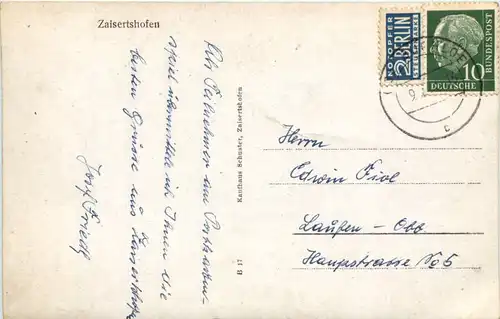 Zaisertshofen
NOTOPFER
2 BERLIN
STEUERMARKE
10
DEUTSCHE
BUNDESPOST
Als Teilnehmer am Postkarten-
spiel übermittle ich Ihnen die
besten Grüsse aus Zaisertshofen
Josef Friedl
Kaufhaus Schuster, Zaisertshofen
B 17
Herrn
Laufen - Obb
Hauptstrasse No 5